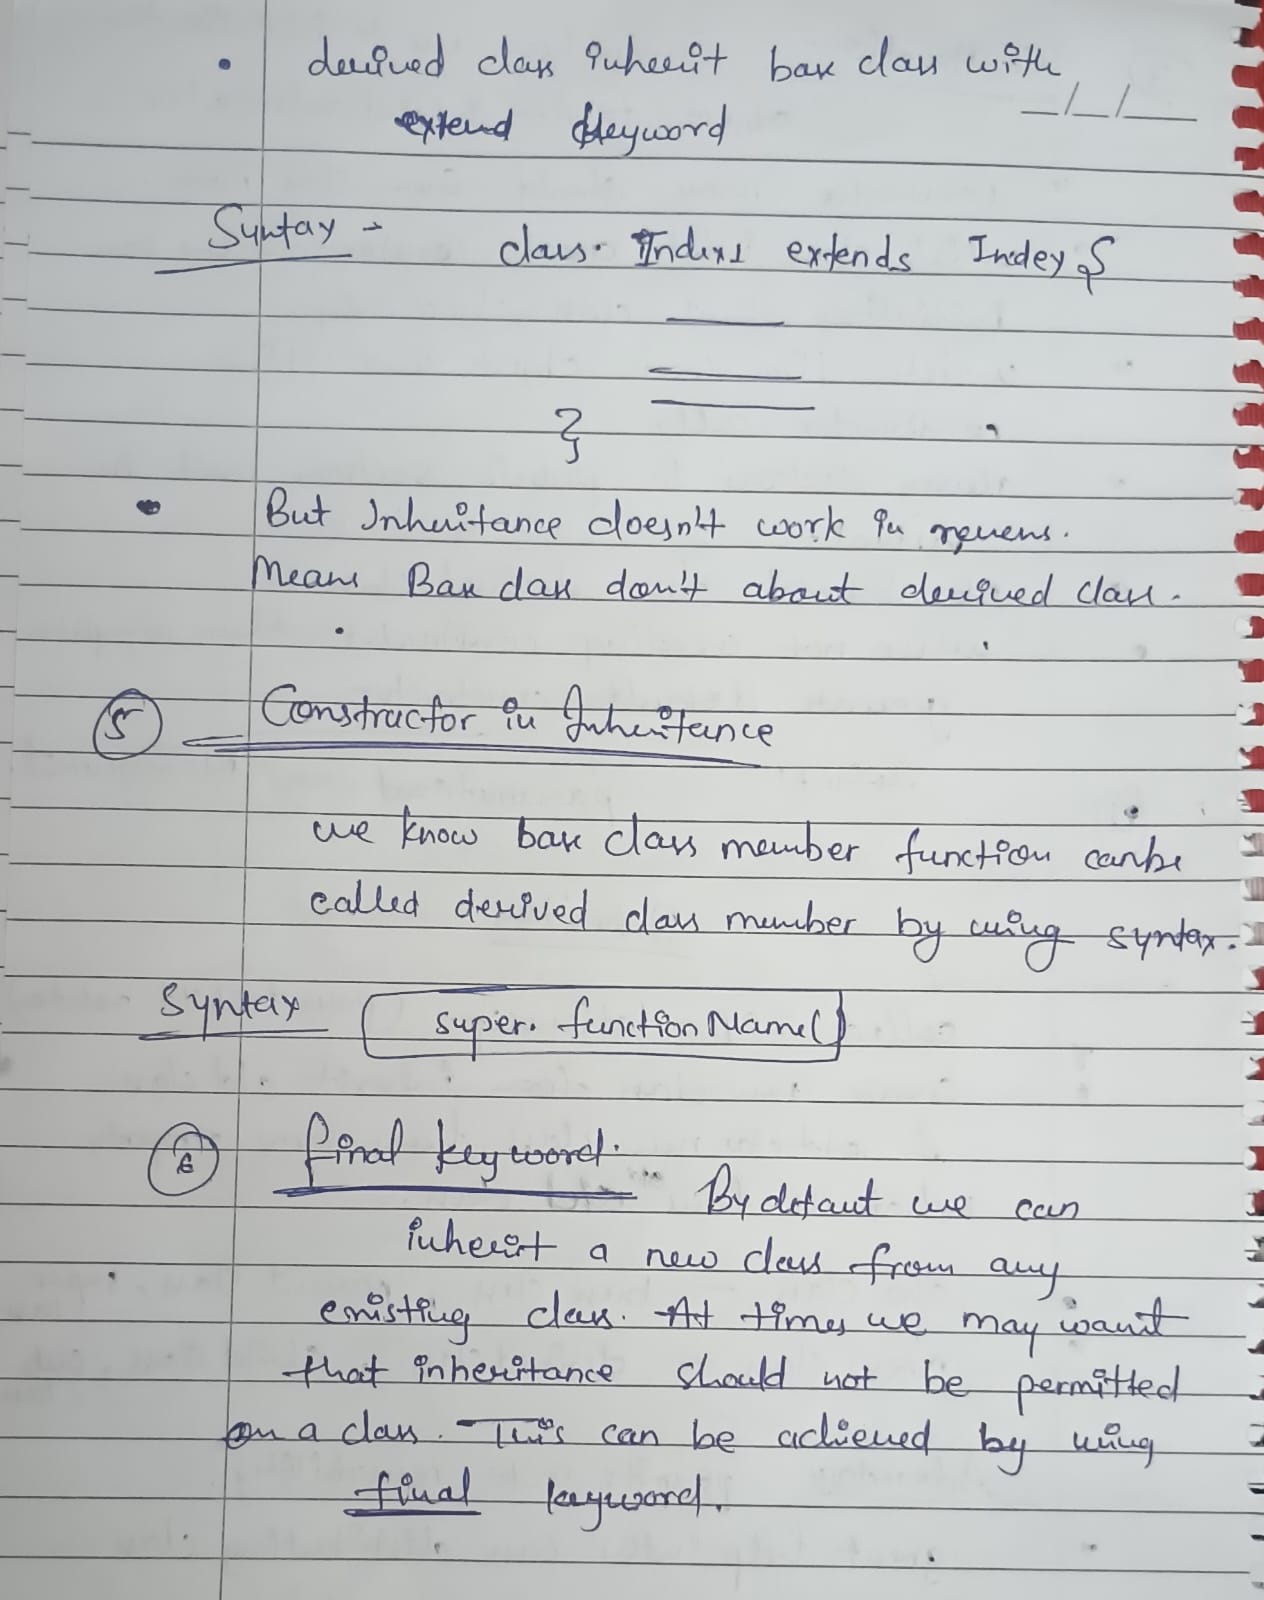 • derived class inherit base class with
extend keyword
Syntax - class Index1 extends Index {
}
• But Inheritance doesn't work in revers.
Means Base class don't about derived class.
5 Constructor in Inheritance
we know base class member function can be
called derived class member by using syntax.
Syntax super. functionName()
6 final keyword.
By defaut we can
inherit a new class from any
existing class. At times we may want
that inheritance should not be permitted
on a class. This can be achieved by using
final keyword.